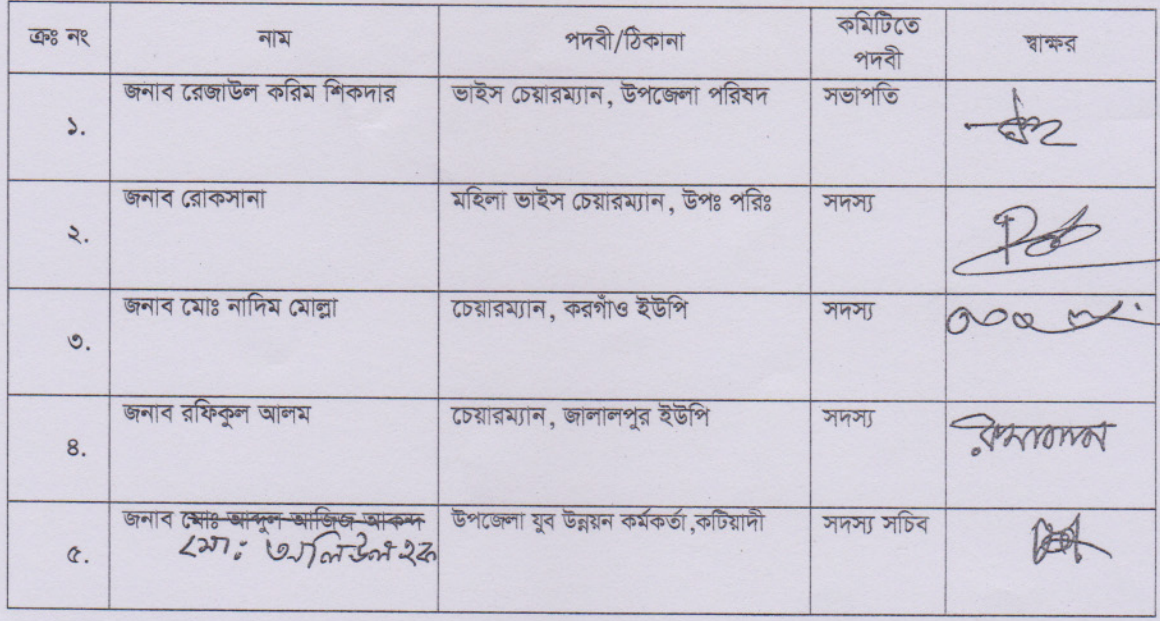 ক্রঃ নং নাম পদবী/ঠিকানা কমিটিতে পদবী স্বাক্ষর
১. জনাব রেজাউল করিম শিকদার ভাইস চেয়ারম্যান, উপজেলা পরিষদ সভাপতি
২. জনাব রোকসানা মহিলা ভাইস চেয়ারম্যান, উপঃ পরিঃ সদস্য
৩. জনাব মোঃ নাদিম মোল্লা চেয়ারম্যান, করগাঁও ইউপি সদস্য
৪. জনাব রফিকুল আলম চেয়ারম্যান, জালালপুর ইউপি সদস্য
৫. জনাব মোঃ আব্দুল আজিজ আকন্দ উপজেলা যুব উন্নয়ন কর্মকর্তা,কটিয়াদী সদস্য সচিব
মোঃ অলিউল হক